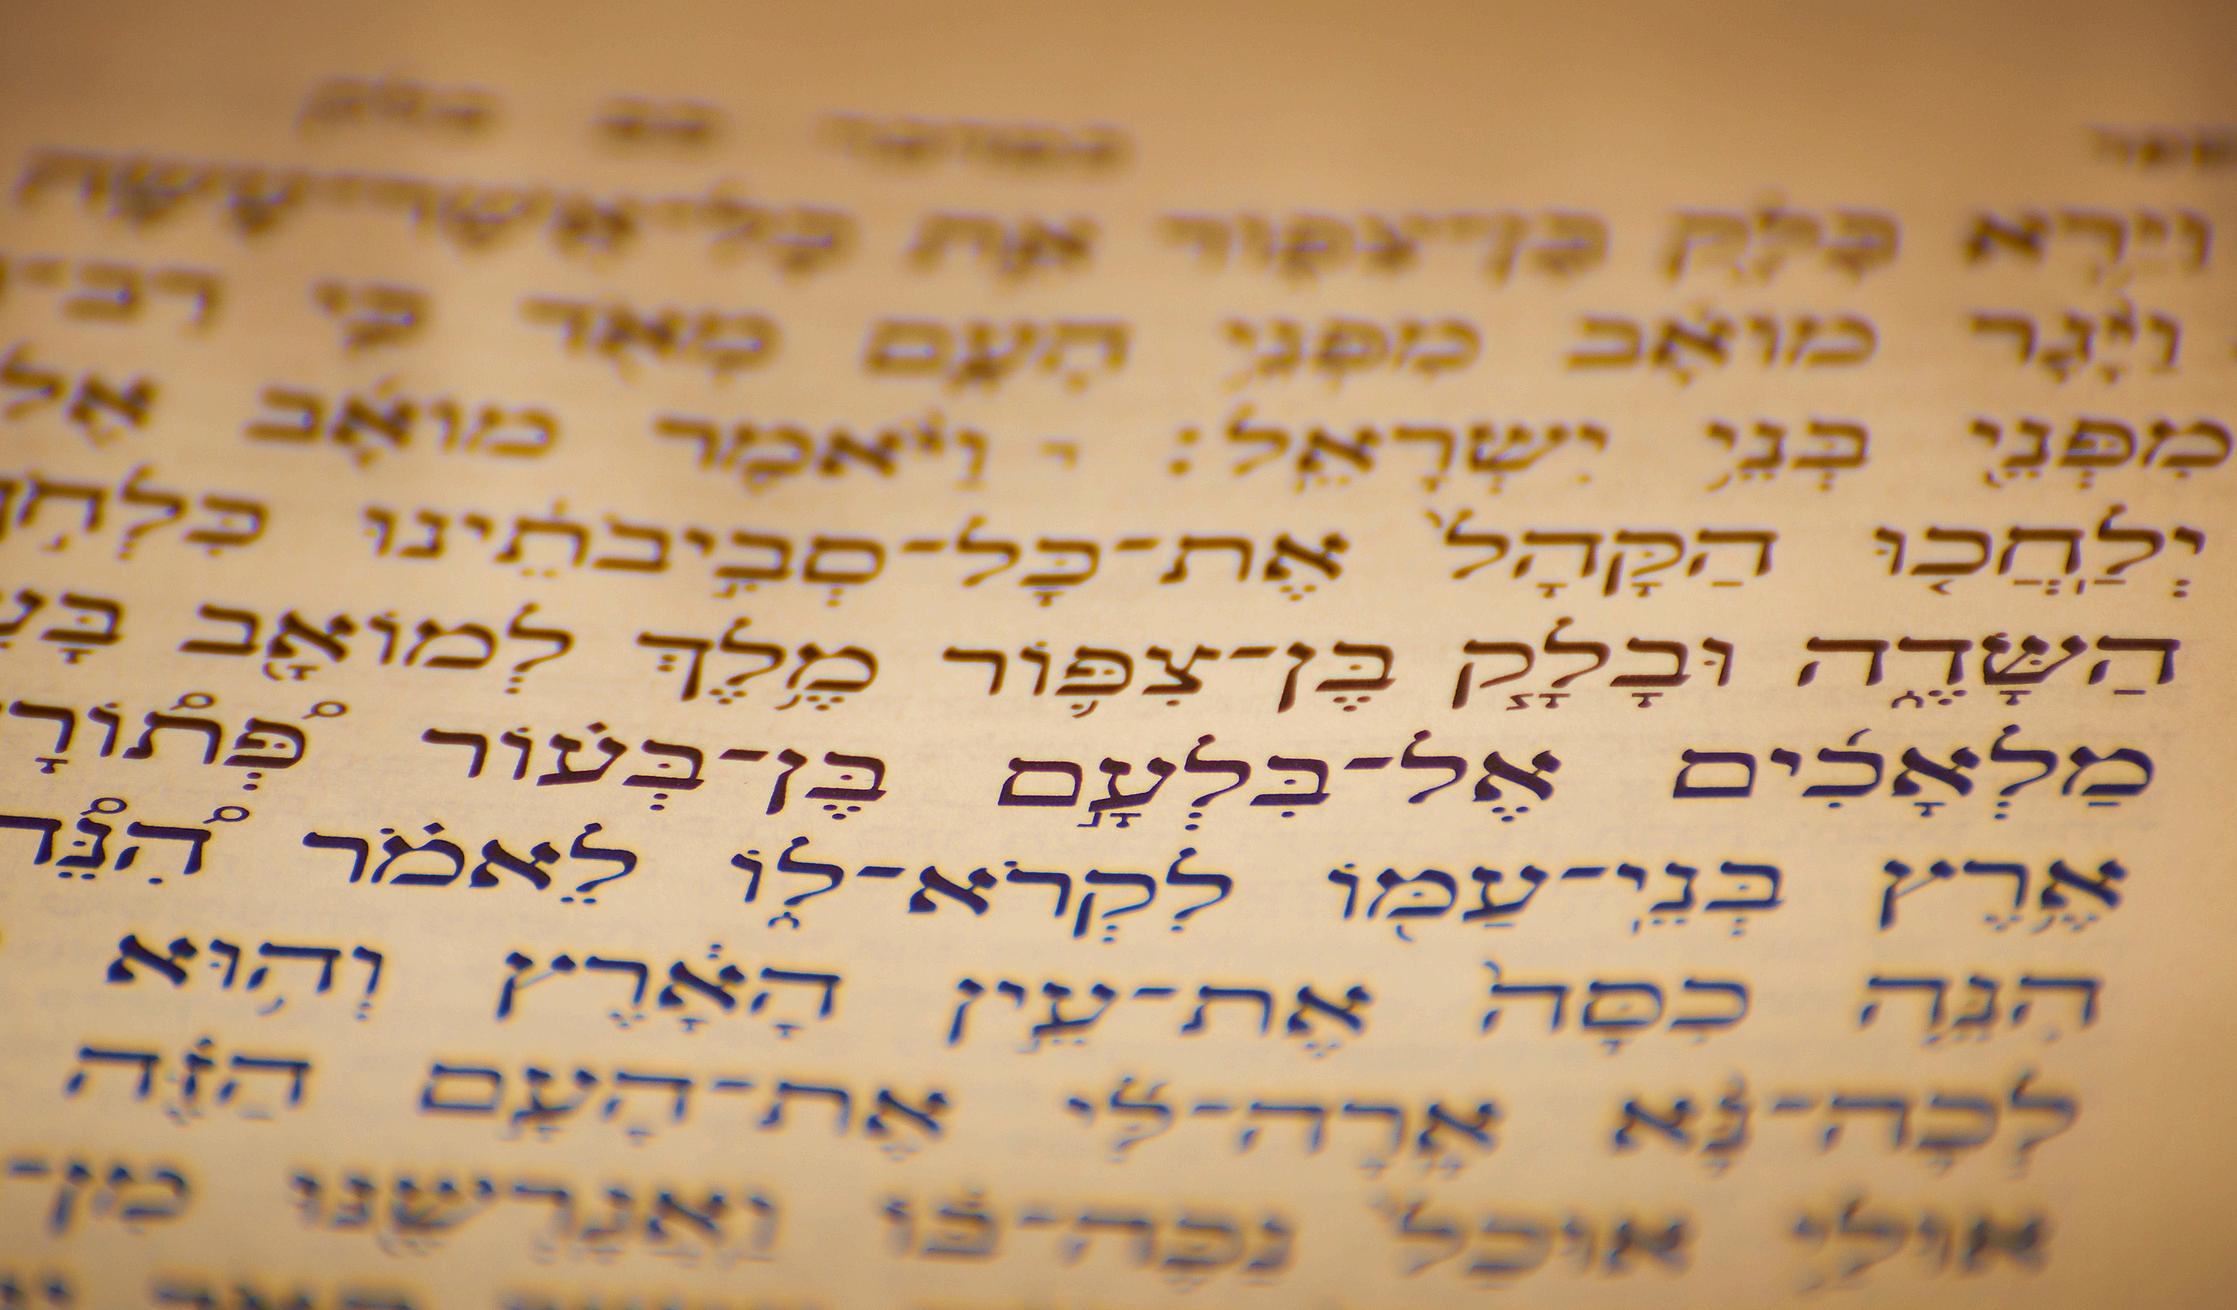 במדבר כב בלק
וַיַּ֥רְא בָּלָ֖ק בֶּן־צִפּ֑וֹר אֵ֛ת כָּל־אֲשֶׁר־עָשָׂ֥ה
וַיָּ֨גָר מוֹאָ֜ב מִפְּנֵ֥י הָעָ֛ם מְאֹ֖ד כִּ֣י רַב־
מִפְּנֵ֖י בְּנֵ֥י יִשְׂרָאֵֽל׃ וַיֹּ֨אמֶר מוֹאָ֜ב אֶל
יְלַחֲכ֤וּ הַקָּהָל֙ אֶת־כָּל־סְבִ֣יבֹתֵ֔ינוּ
הַשָּׂדֶ֑ה וּבָלָ֧ק בֶּן־צִפּ֛וֹר מֶ֥לֶךְ לְמוֹאָ֖ב
מַלְאָכִ֜ים אֶל־בִּלְעָ֣ם בֶּן־בְּע֗וֹר
אֶ֥רֶץ בְּנֵי־עַמּ֖וֹ לִקְרֹא־ל֑וֹ לֵאמֹ֗ר
הִנֵּ֤ה כִסָּה֙ אֶת־עֵ֣ין הָאָ֔רֶץ וְה֥וּא
לְכָה־נָּ֜א אָֽרָה־לִּ֞י אֶת־הָעָ֣ם הַזֶּ֗ה
אוּלַ֤י אוּכַל֙ נַכֶּה־בּ֔וֹ וַאֲגָרְשֶׁ֖נּוּ מִן־